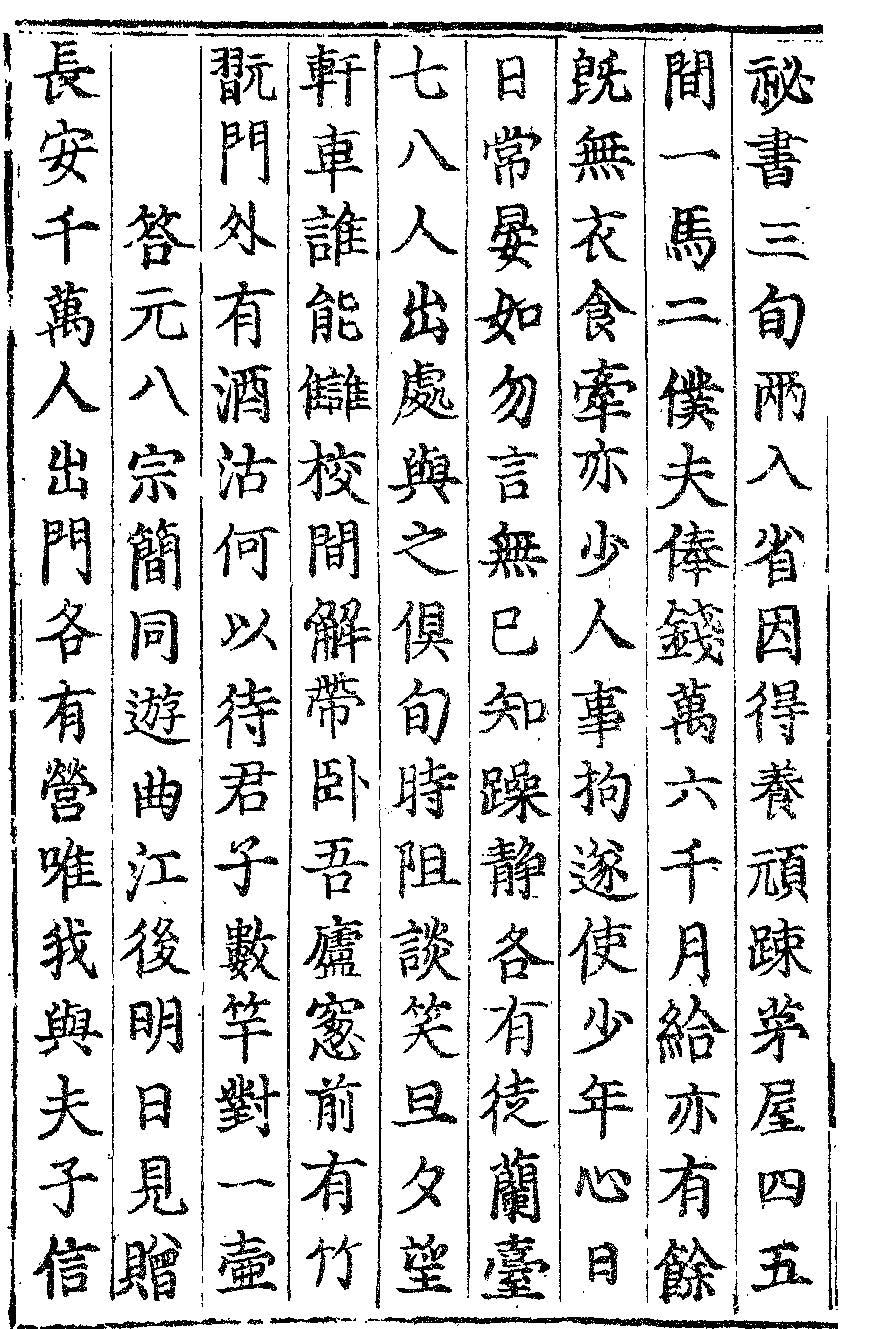 祕書三旬兩入省因得養頑踈茅屋四五
間一馬二僕夫俸錢萬六千月給亦有餘
旣無衣食牽亦少人事拘遂使少年心日
日常晏如勿言無已知躁静各有徒蘭臺
七八人出處與之俱旬時阻談笑旦夕望
軒車誰能讎校間解帶卧吾廬窻前有竹
翫門外有酒沽何以待君子數竿對一壷
答元八宗簡同遊曲江後明日見贈
長安千萬人出門各有營唯我與夫子信